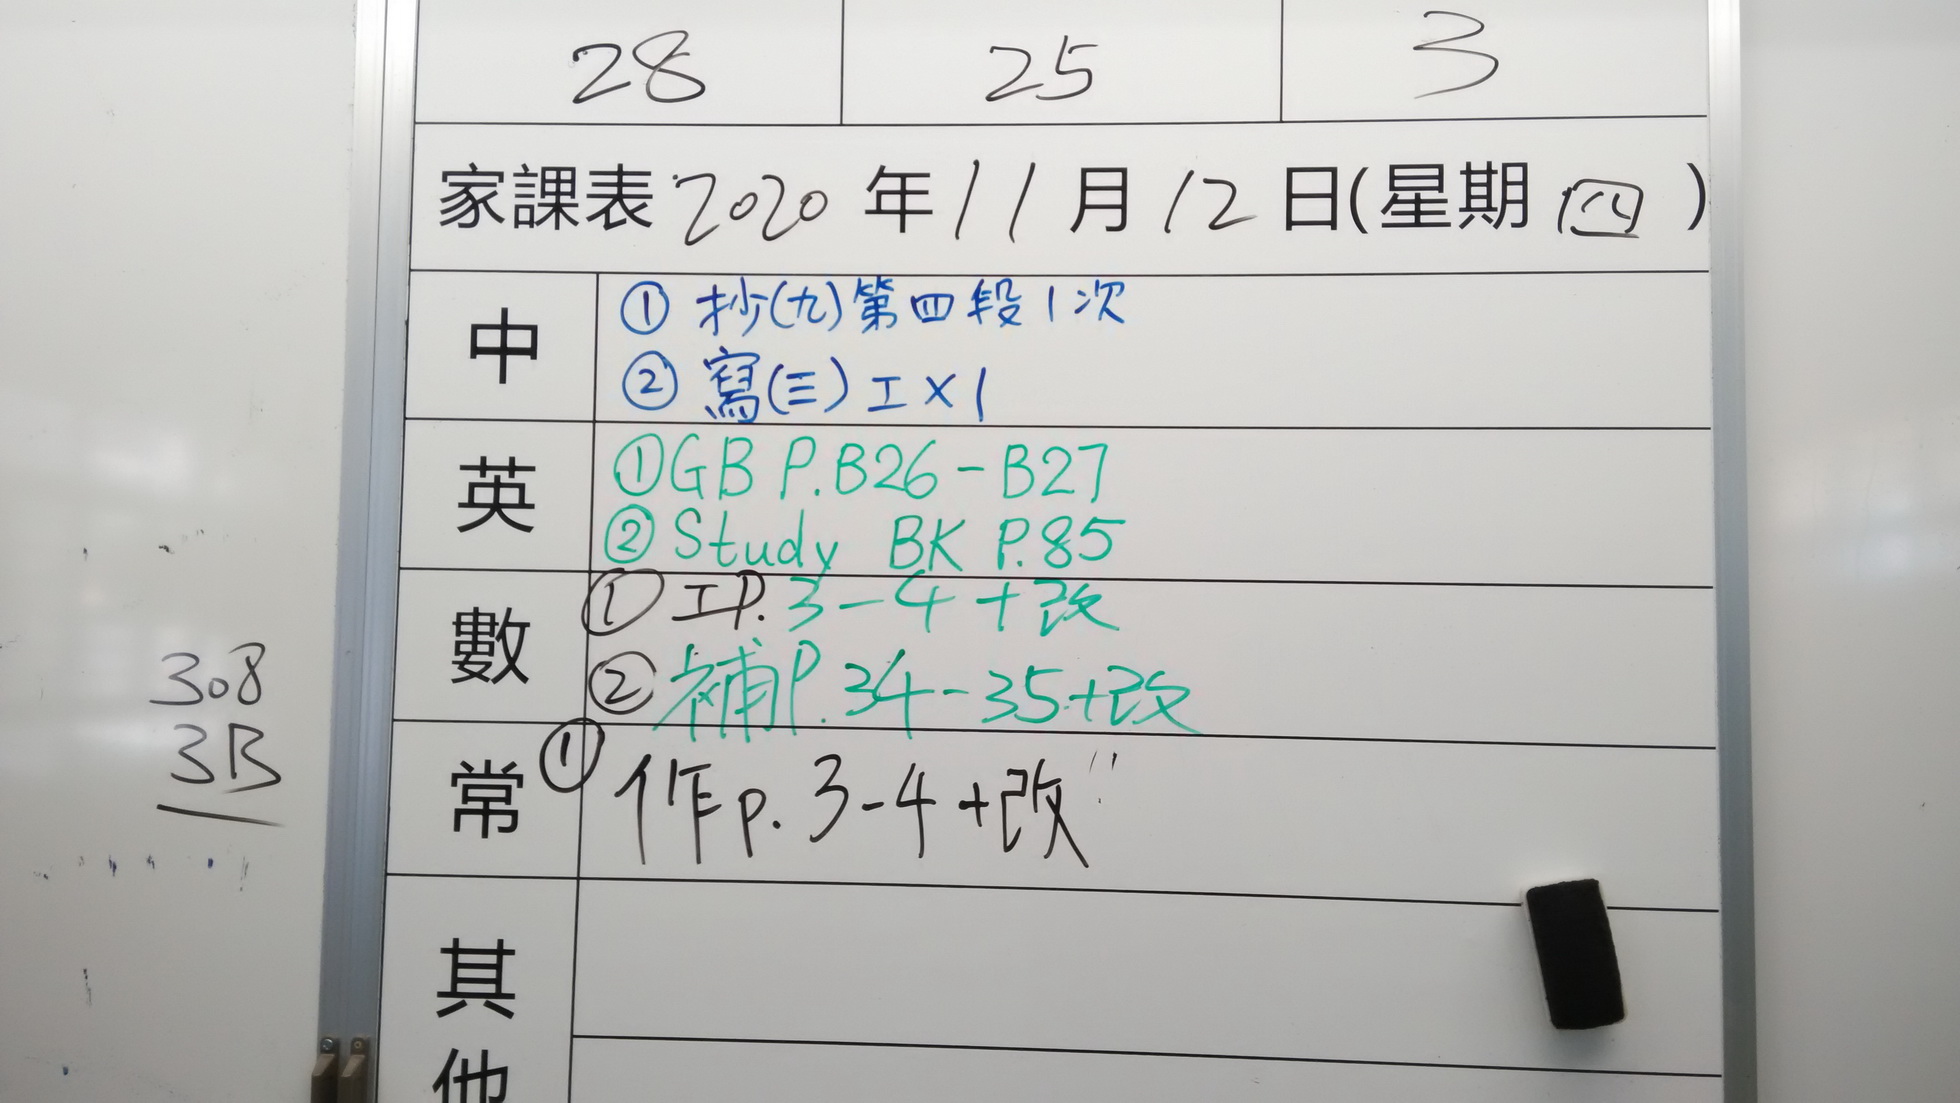 28 25 3
家課表 2020 年 11 月 12 日(星期 四 )
中
① 抄(九)第四段1次
② 寫(三)工×1
英
① GB P.B26-B27
② Study BK P.85
數
① 工P. 3-4+改
② 補P.34-35+改
常
① 作p. 3-4+改
其他
308
3B